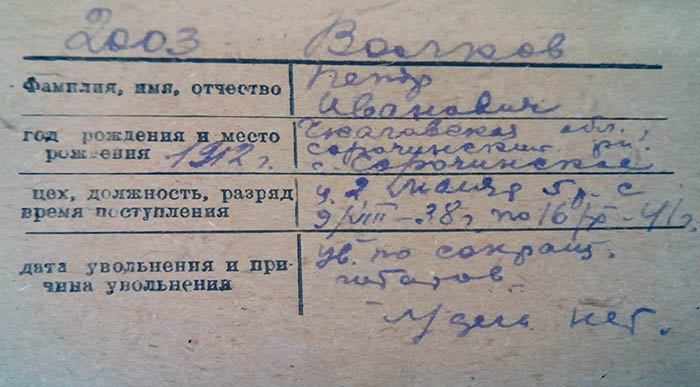 2003 Волков
Фамилия, имя, отчество Петр
Иванович
год рождения и место рождения 1912 г. Чкаловская обл.,
Сорочинский рн.
с. Сорочинское
цех, должность, разряд ц. 2 5 р. с
время поступления 9/VIII-38г по 16/IX-41г.
дата увольнения и при- ув. по сокращ.
чина увольнения штатов
Л/дела нет.